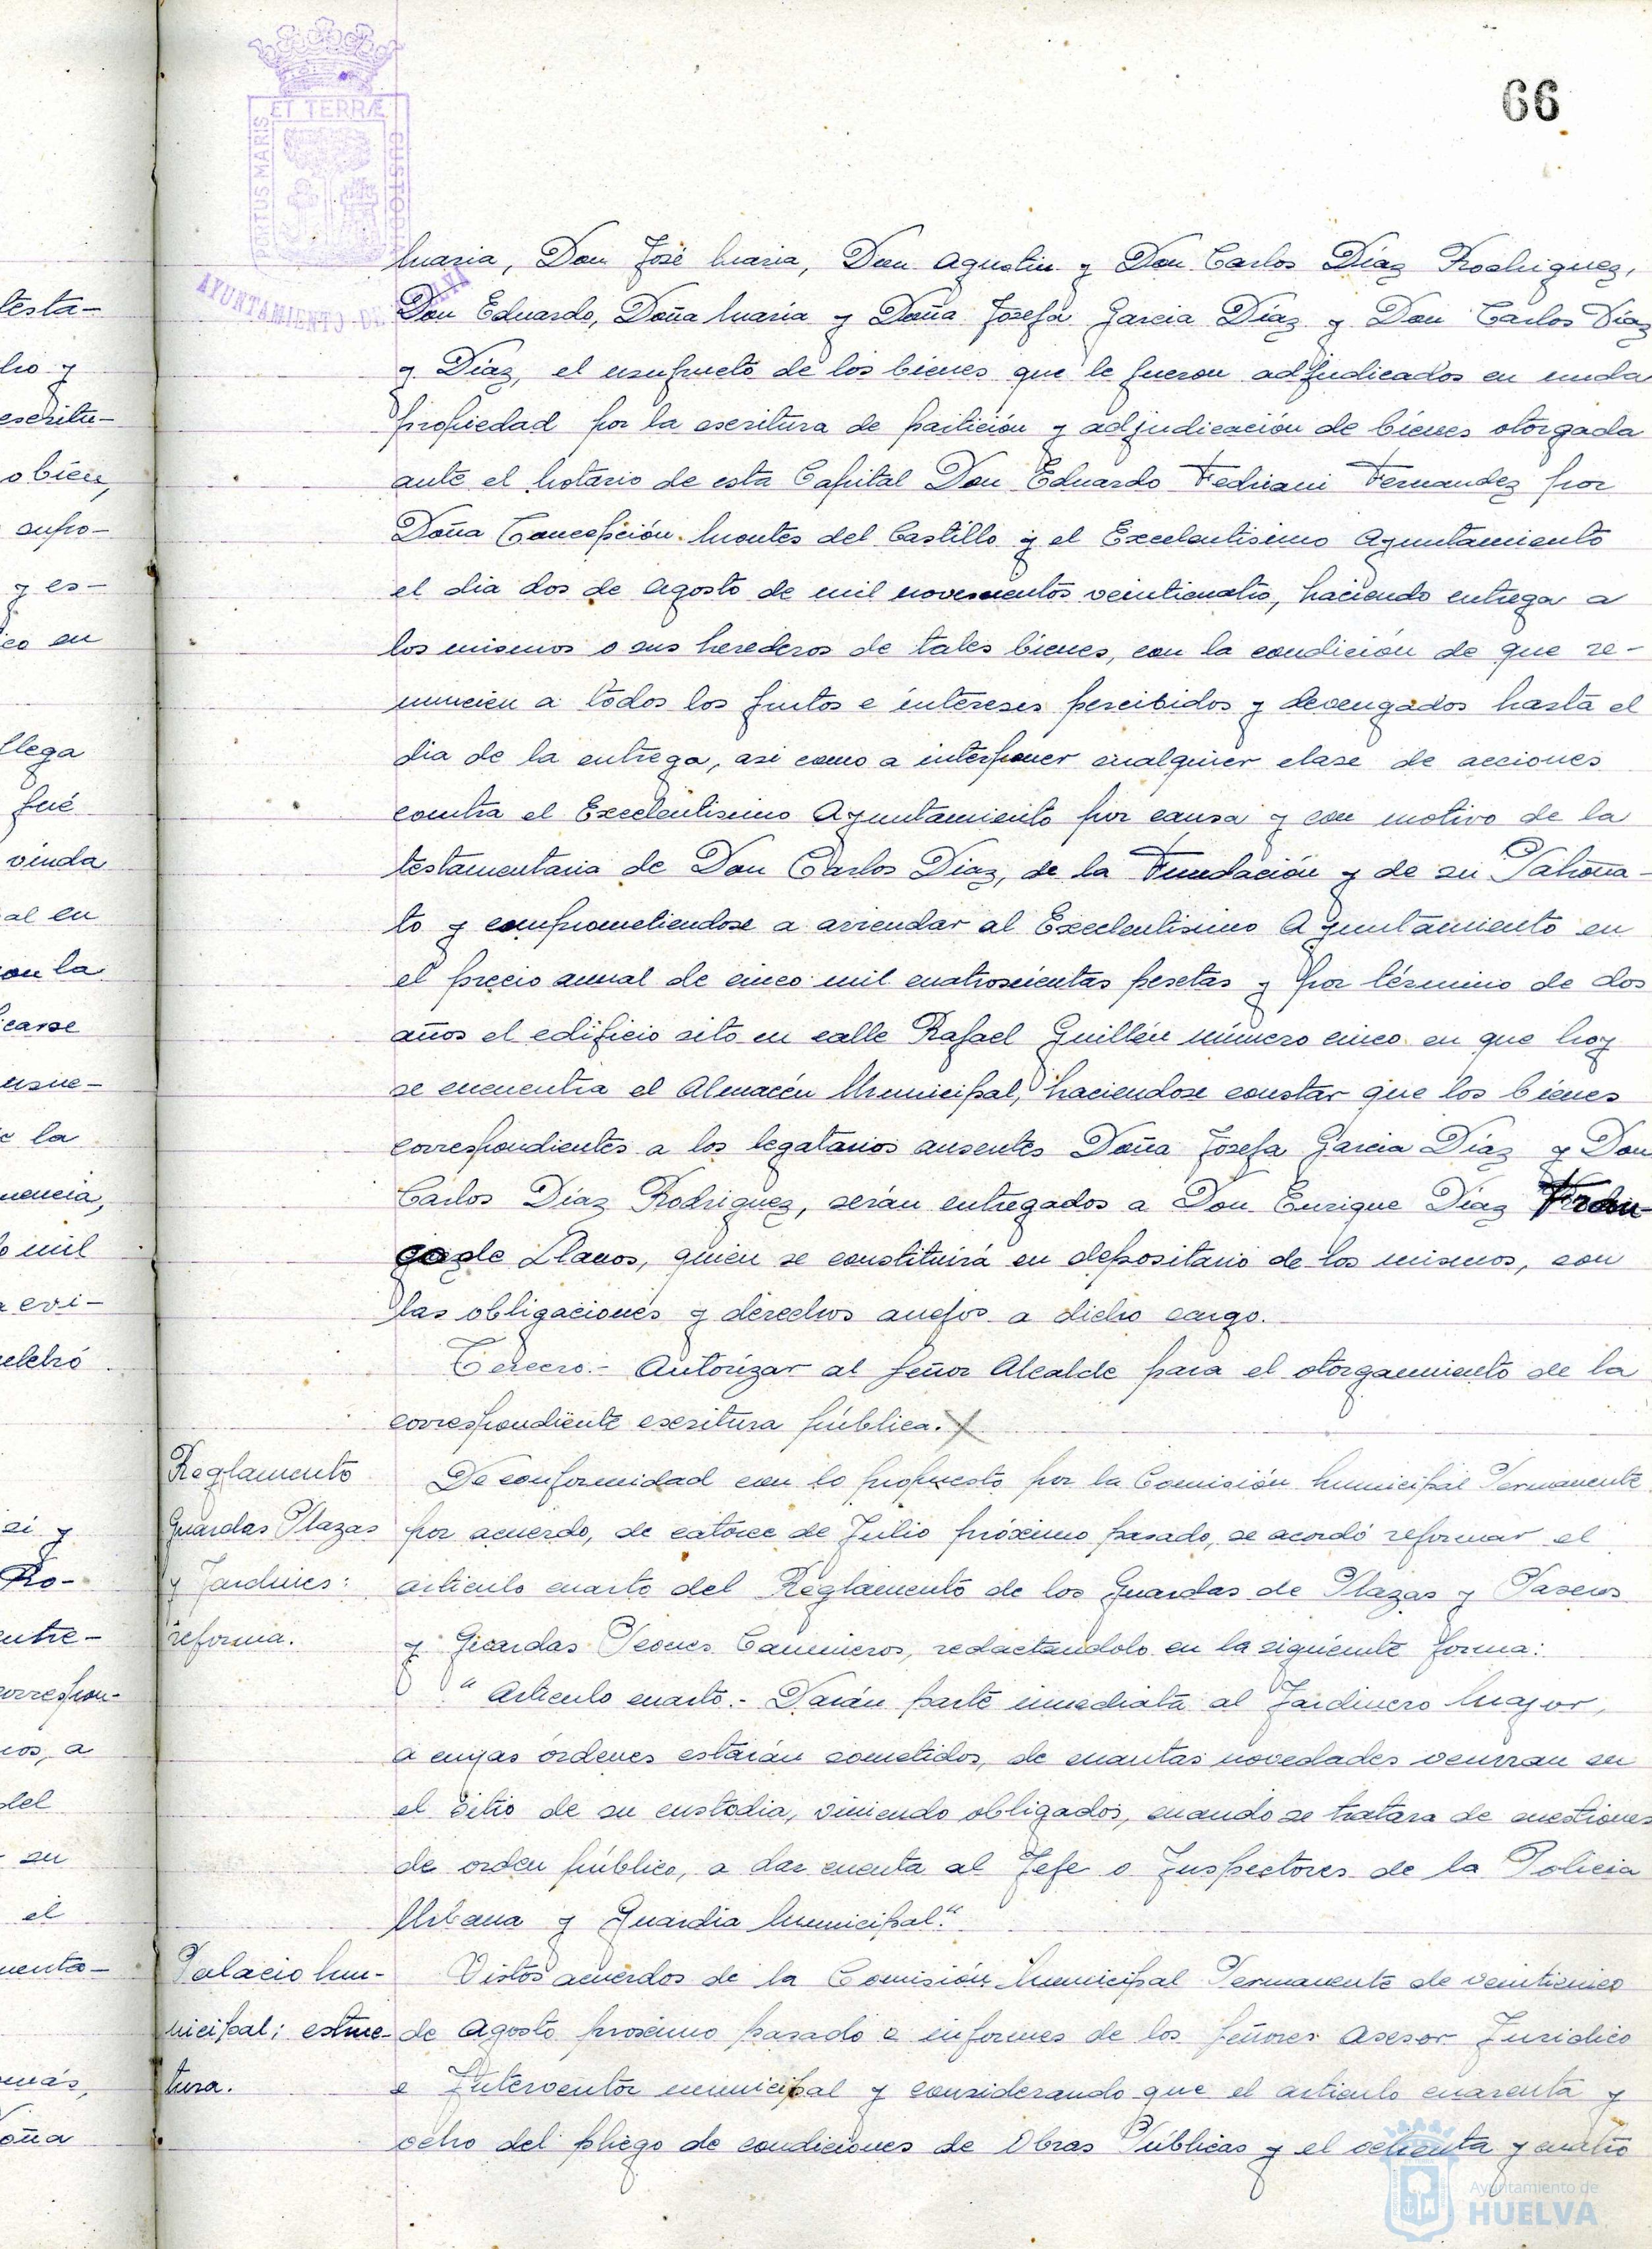 66
PORTUS MARIS ET TERRÆ CUSTODIA
AYUNTAMIENTO DE HUELVA
Maria, Don José Maria, Don Agustin y Don Carlos Díaz Rodriguez,
Don Eduardo, Doña María y Doña Josefa Garcia Díaz y Don Carlos Díaz
y Diaz, el usufructo de los bienes que le fueron adjudicados en nuda
propiedad por la escritura de partición y adjudicación de bienes otorgada
ante el Notario de esta Capital Don Eduardo Fedriani Fernandez por
Doña Concepción Montes del Castillo y el Excelentisimo Ayuntamiento
el dia dos de Agosto de mil novecientos veinticuatro, haciendo entrega a
los mismos o sus herederos de tales bienes, con la condición de que re-
nuncien a todos los frutos e intereses percibidos y devengados hasta el
dia de la entrega, asi como a interponer cualquier clase de acciones
contra el Excelentisimo Ayuntamiento por causa y con motivo de la
testamentaria de Don Carlos Diaz, de la Fundación y de su Patrona-
to y comprometiendose a arrendar al Excelentisimo Ayuntamiento en
el precio anual de cinco mil cuatrocientas pesetas y por término de dos
años el edificio sito en calle Rafael Guillén número cinco en que hoy
se encuentra el Almacén Municipal, haciendose constar que los bienes
correspondientes a los legatarios ausentes Doña Josefa Garcia Díaz y Don
Carlos Díaz Rodriguez, serán entregados a Don Enrique Díaz
de Llanos, quien se constituirá en depositario de los mismos, con
las obligaciones y derechos anejos a dicho cargo.
Tercero.- Autorizar al Señor Alcalde para el otorgamiento de la
correspondiente escritura pública.
Reglamento
Guardas Plazas
y Jardines:
reforma.
De conformidad con lo propuesto por la Comisión Municipal Permanente
por acuerdo, de catorce de Julio próximo pasado, se acordó reformar el
articulo cuarto del Reglamento de los Guardas de Plazas y Paseos
y Guardas Peones Camineros, redactandolo en la siguiente forma:
" Articulo cuarto.- Darán parte inmediata al Jardinero Mayor,
a cuyas órdenes estarán sometidos, de cuantas novedades ocurran en
el sitio de su custodia, viniendo obligados, cuando se tratara de cuestiones
de orden público, a dar cuenta al Jefe o Inspectores de la Policia
Urbana y Guardia Municipal."
Palacio Mu-
nicipal; estruc-
tura.
Vistos acuerdos de la Comisión Municipal Permanente de veinticinco
de Agosto proximo pasado e informes de los Señores Asesor Juridico
e Interventor municipal y considerando que el articulo cuarenta y
ocho del pliego de condiciones de Obras Públicas y el ochenta y cuatro
testa-
escritu-
o bien,
y es-
llega
fué
vinda
al en
la
mil
evi-
si y
entre-
a
del
su
el
Ayuntamiento de
HUELVA